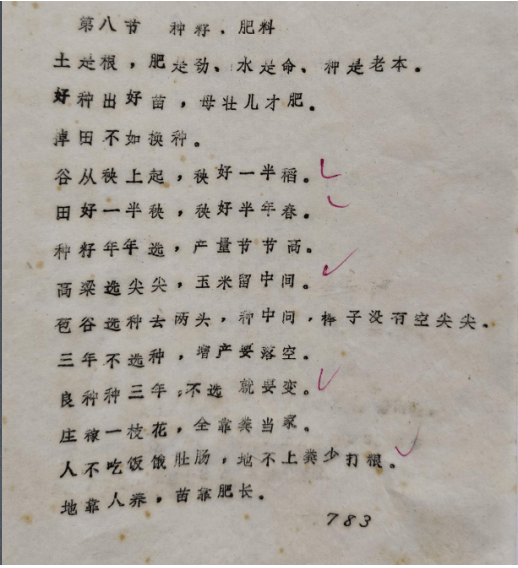 第八节 种籽．肥料
土是根，肥是劲、水是命、种是老本。
好种出好苗，母壮儿才肥。
掉田不如换种。
谷从秧上起，秧好一半稻。
田好一半秧，秧好半年春。
种籽年年选，产量节节高。
高梁选尖尖，玉米留中间。
苞谷选种去两头，种中间，棒子没有空尖尖。
三年不选种，增产要落空。
良种种三年，不选就要变。
庄稼一枝花，全靠粪当家。
人不吃饭饿肚肠，地不上粪少打粮。
地靠人养，苗靠肥长。
783